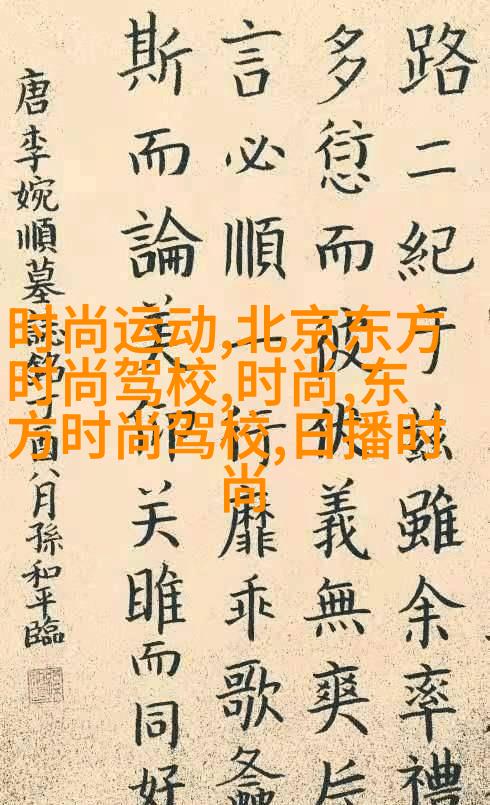 时尚运动,北京东方
时尚驾校,时尚,东
方时尚驾校,日播时
尚
路二紀于茲雖余率禮
多愆而彼伏義無爽
言必順一行靡乖歌螽
斯而論美仰关雎而同好
唐李婉順墓誌銘丁酉八月孫和平臨